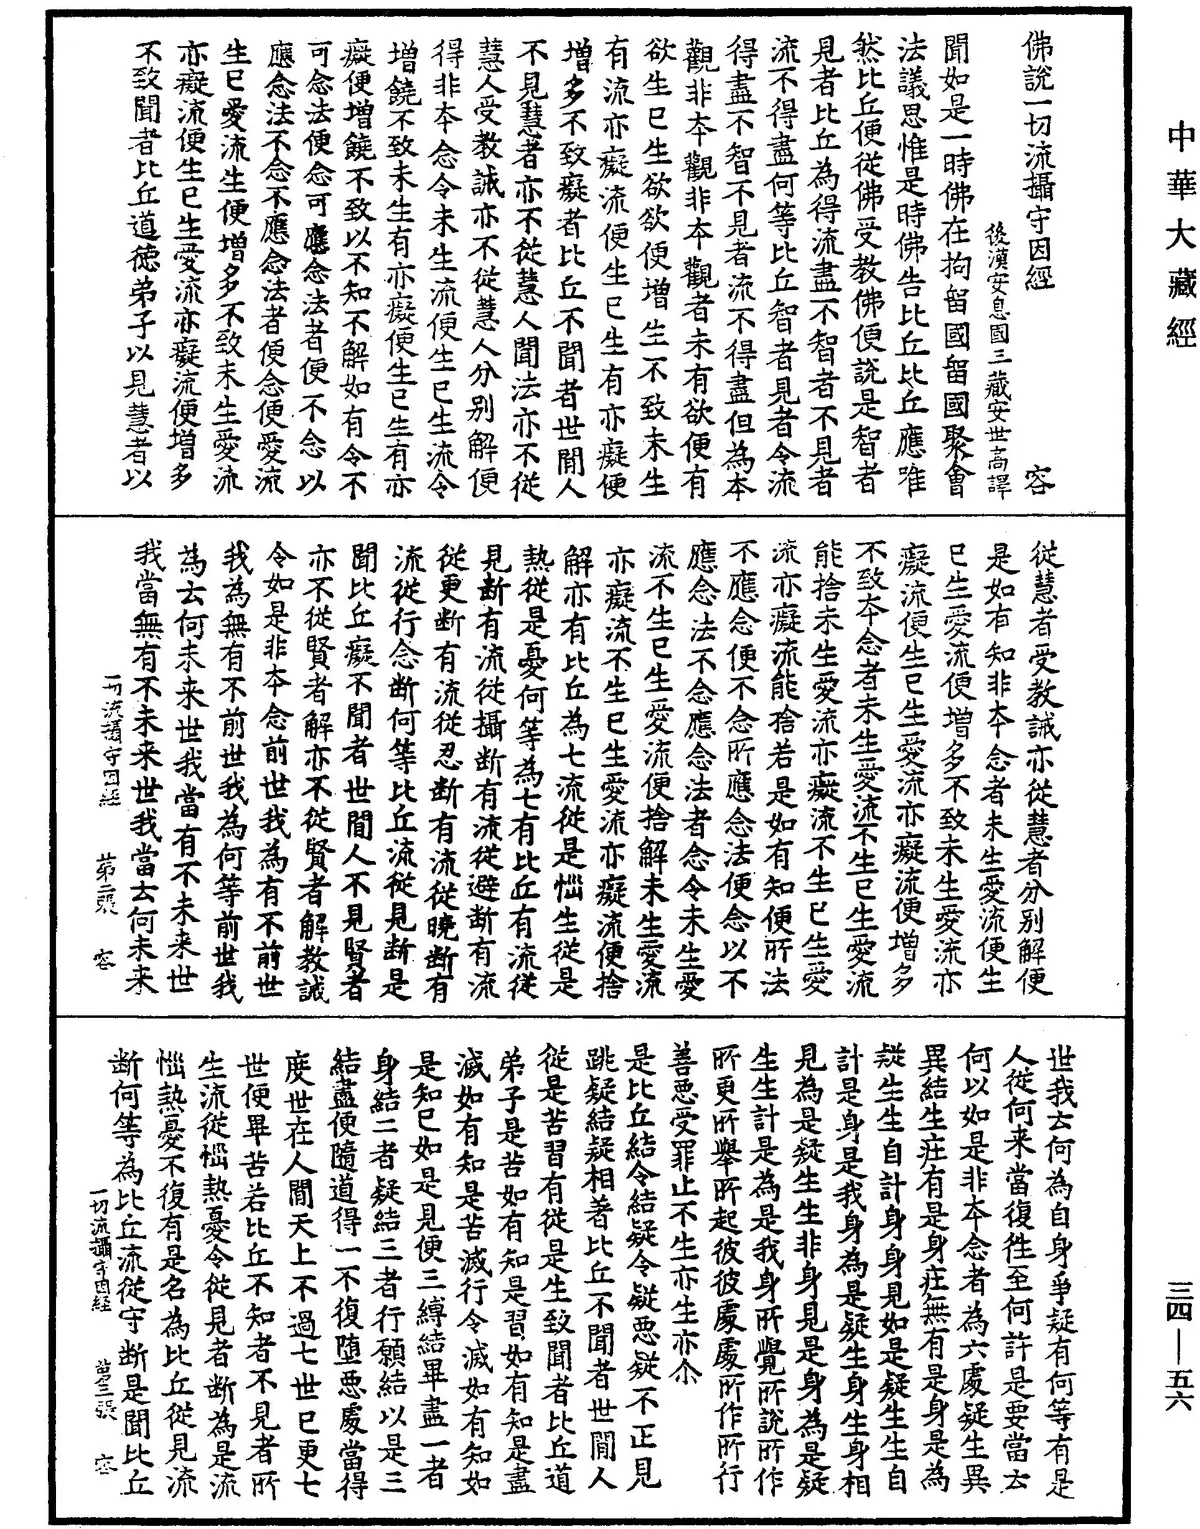 中華大藏經
佛說一切流攝守因經 容
後漢安息國三藏安世高譯
聞如是一時佛在拘留國留國聚會
法議思惟是時佛告比丘比丘應唯
然比丘便從佛受教佛便說是智者
見者比丘為得流盡不智者不見者
流不得盡何等比丘智者見者令流
得盡不智不見者流不得盡但為本
觀非本觀非本觀者未有欲便有
欲生已生欲欲便增生不致未生
有流亦癡流便生已生有亦癡便
增多不致癡者比丘不聞者世間人
不見慧者亦不從慧人聞法亦不從
慧人受教誡亦不從慧人分別解便
得非本念令未生流便生已生流令
增饒不致未生有亦癡便生已生有亦
癡便增饒不致以不知不解如有令不
可念法便念可應念法者便不念以
應念法不念不應念法者便念便愛流
生已愛流生便增多不致未生愛流
亦癡流便生已生愛流亦癡流便增多
不致聞者比丘道德弟子以見慧者以
從慧者受教誡亦從慧者分別解便
是如有知非本念者未生愛流便生
已生愛流便增多不致未生愛流亦
癡流便生已生愛流亦癡流便增多
不致本念者未生愛流不生已生愛流
能捨未生愛流亦癡流不生已生愛
流亦癡流能捨若是如有知便所法
不應念便不念所應念法便念以不
應念法不念應念法者念令未生愛
流不生已生愛流便捨解未生愛流
亦癡流不生已生愛流亦癡流便捨
解亦有比丘為七流從是惱生從是
熱從是憂何等為七有比丘有流從
見斷有流從攝斷有流從避斷有流
從更斷有流從忍斷有流從曉斷有
流從行念斷何等比丘流從見斷是
聞比丘癡不聞者世間人不見賢者
亦不從賢者解亦不從賢者解教誡
令如是非本念前世我為有不前世
我為無有不前世我為何等前世我
為去何未來世我當有不未來世
我當無有不未來世我當去何未來
一切流攝守因經 第二張 容
世我去何為自身爭疑有何等有是
人從何來當復往至何許是要當去
何以如是非本念者為六處疑生異
異結生疘有是身疘無有是身是為
疑生生自計身身見如是疑生生自
計是身是我身為是疑生身生身相
見為是疑生生非身見是身為是疑
生生計是為是我身所覺所說所作
所更所舉所起彼彼處處所作所行
善惡受罪止不生亦生亦尒
是比丘結令結疑令疑惡疑不正見
跳疑結疑相著比丘不聞者世間人
從是苦習有從是生致聞者比丘道
弟子是苦如有知是習如有知是盡
滅如有知是苦滅行令滅如有知如
是知已如是見便三縛結畢盡一者
身結二者疑結三者行願結以是三
結盡便隨道得一不復墮惡處當得
度世在人間天上不過七世已更七
世便畢苦若比丘不知者不見者所
生流從惱熱憂令從見者斷為是流
惱熱憂不復有是名為比丘從見流
斷何等為比丘流從守斷是聞比丘
一切流攝守因經 第三張 容
三四—五六